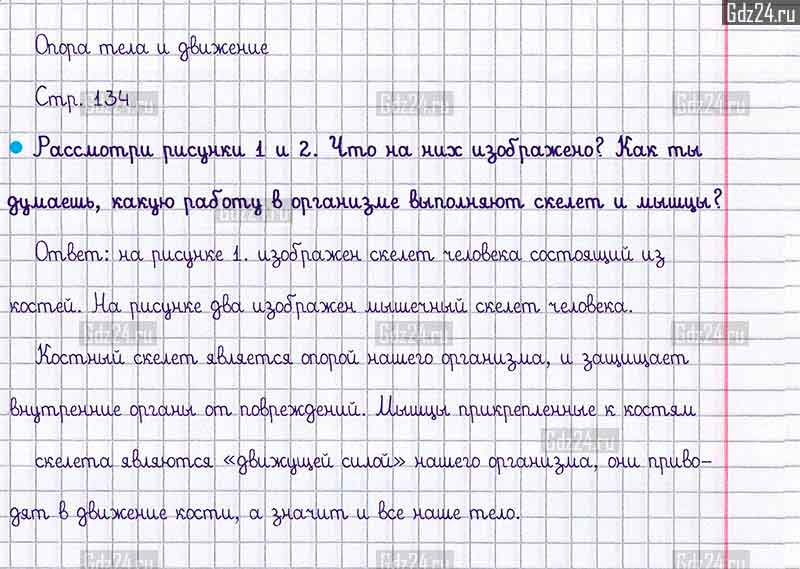 Gdz24.ru
Опора тела и движение
Стр. 134
Рассмотри рисунки 1 и 2. Что на них изображено? Как ты
думаешь, какую работу в организме выполняют скелет и мышцы?
Ответ: на рисунке 1. изображен скелет человека состоящий из
костей. На рисунке два изображен мышечный скелет человека.
Костный скелет является опорой нашего организма, и защищает
внутренние органы от повреждений. Мышцы прикрепленные к костям
скелета являются «движущей силой» нашего организма, они приво-
дят в движение кости, а значит и все наше тело.